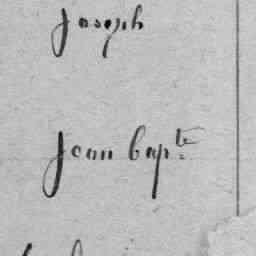 joseph
jean bapte